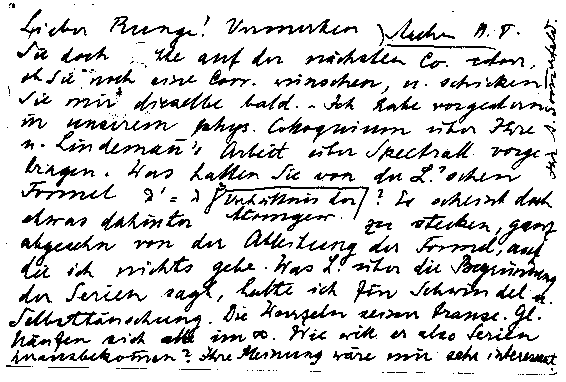 Lieber Runge! Vermerken
Sie doch auf der nächsten Co
ob Sie noch eine Corr. wünschen, u. schicken
Sie mir dieselbe bald. – Ich habe vorgestern
in unserem phys. Colloquium über Ihre
u. Lindemann's Arbeit über Spectrall. vorge-
tragen. Was halten Sie von der L.'schen
Formel λ' = λ √Verhältnis der ? Es scheint doch
etwas dahinter Atomgew. zu stecken, ganz
abgesehn von der Ableitung der Formel, auf
die ich nichts gebe. Was L. über die Begründung
der Serien sagt, halte ich für Schwindel u.
Selbsttäuschung. Die Wurzeln seiner transc. Gl.
häufen sich alle im ∞. Wie will er also Serien
herausbekommen? Ihre Meinung wäre mir sehr interessant.
A. Sommerfeld.